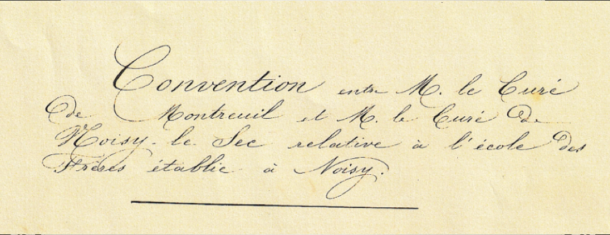 Convention entre M. le Curé
de Montreuil et M. le Curé de
Noisy-le Sec relative à l'école des
Frères établie à Noisy.